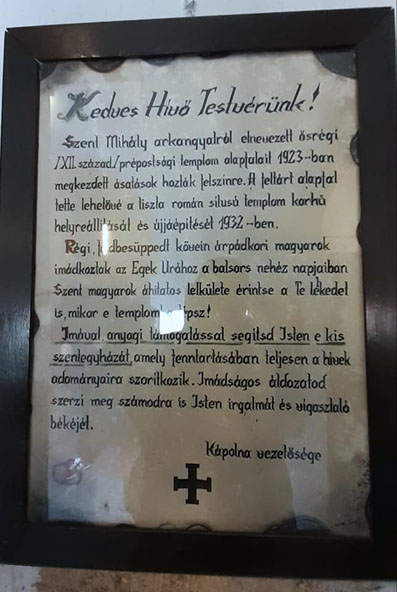 Kedves Hívő Testvérünk!
Szent Mihály arkangyalról elnevezett ősrégi
/XII. század/prépostsági templom alapfalait 1923-ban
megkezdett ásatások hozták felszínre. A feltárt alapfal
tette lehetővé a tiszta román stílusú templom korhű
helyreállítását és újjáépítését 1932-ben.
Régi, földbesüppedt kövein árpádkori magyarok
imádkoztak az Egek Urához a balsors nehéz napjaiban
Szent magyarok áhítatos lelkülete érintse a Te lelkedet
is, mikor e templomba lépsz!
Imával, anyagi támogatással segítsd Isten e kis
szentegyházát, amely fenntartásában teljesen a hívek
adományaira szorítkozik. Imádságos áldozatod
szerzi meg számodra is Isten irgalmát és vigasztaló
békéjét.
Kápolna vezetősége